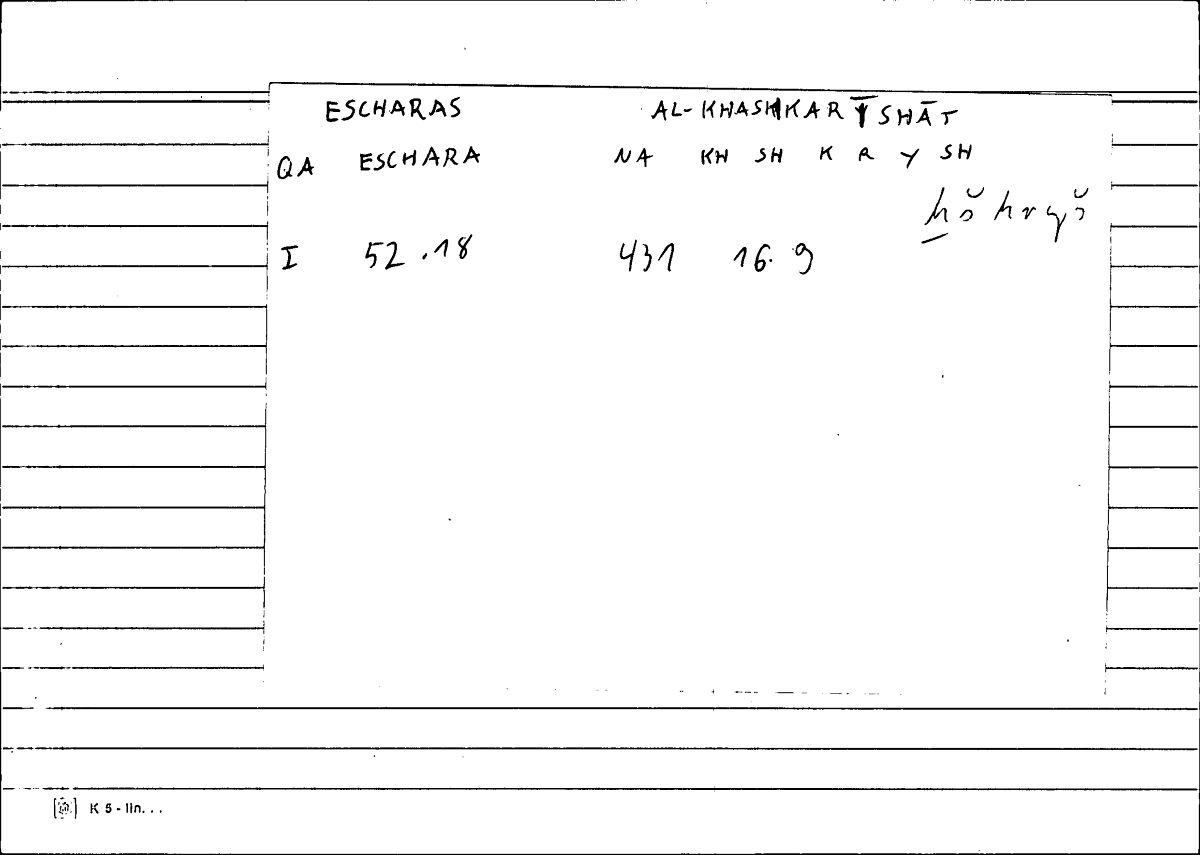 ESCHARAS AL-KHASHKARĪSHĀT
QA ESCHARA NA KH SH K R Y SH
ẖškryš
I 52.18 431 16.9
K 5 - lin...